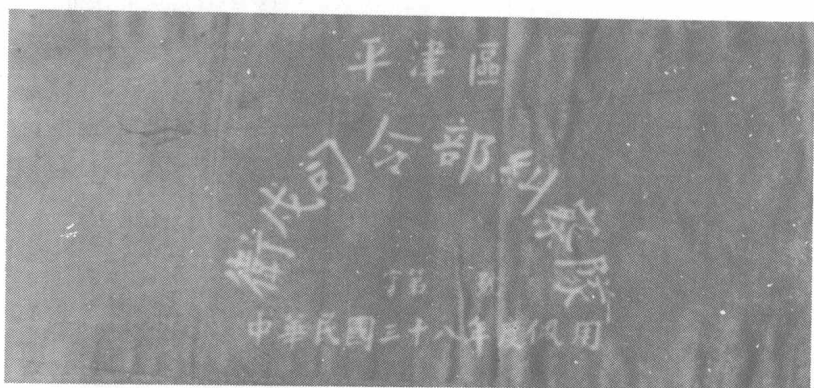 平津區
衛戍司令部糾察隊
丁第 號
中華民國三十八年度佩用